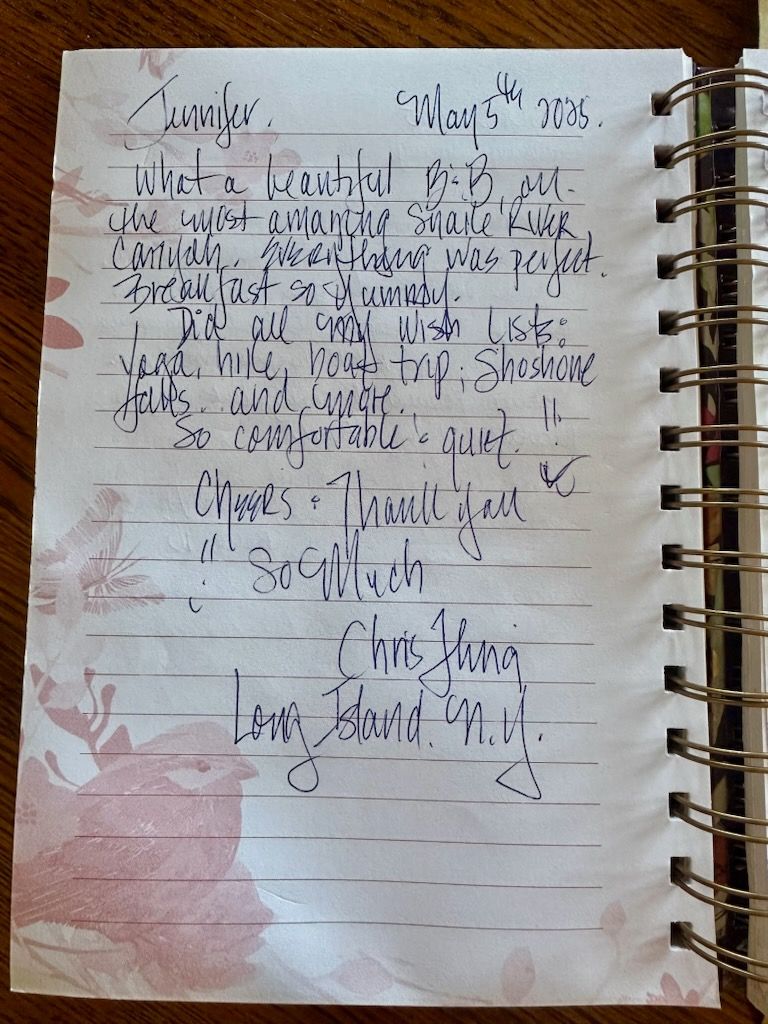 Jennifer. May 5th 2025.
What a beautiful B&B, on
the most amazing Snake River
Canyon. Everything was perfect.
Breakfast so Yummy.
Did all my wish lists:
Yoga, hike, boat trip, Shoshone
falls. and more.
So comfortable & quiet. !!
Cheers & Thank you
!! So Much
Chris
Long Island. N.Y.